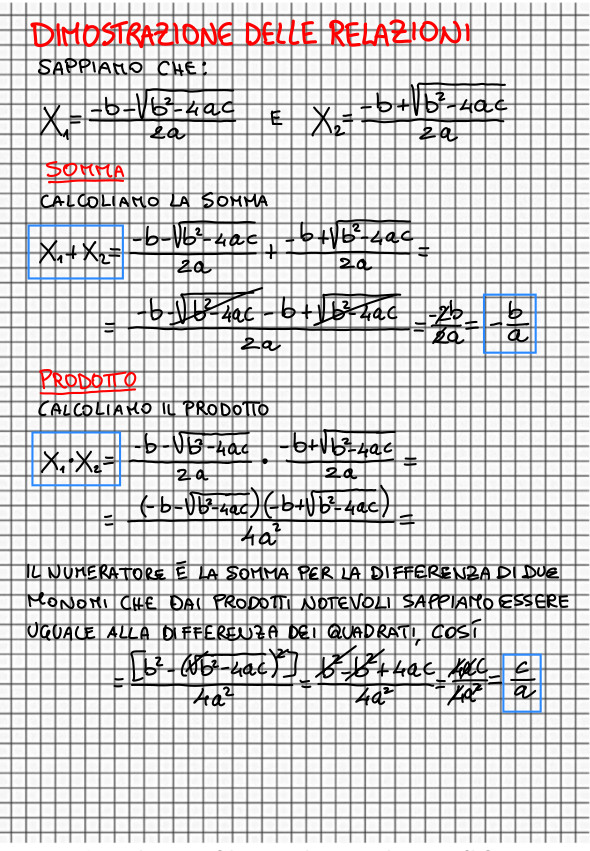 DIMOSTRAZIONE DELLE RELAZIONI
SAPPIAMO CHE:
X₁ = (-b-√(b²-4ac))/2a E X₂ = (-b+√(b²-4ac))/2a
SOMMA
CALCOLIAMO LA SOMMA
X₁+X₂ = (-b-√(b²-4ac))/2a + (-b+√(b²-4ac))/2a =
= (-b-√(b²-4ac) -b+√(b²-4ac))/2a = -2b/2a = -b/a
PRODOTTO
CALCOLIAMO IL PRODOTTO
X₁·X₂ = (-b-√(b²-4ac))/2a · (-b+√(b²-4ac))/2a =
= (-b-√(b²-4ac))(-b+√(b²-4ac))/4a² =
IL NUMERATORE È LA SOMMA PER LA DIFFERENZA DI DUE
MONOMI CHE DAI PRODOTTI NOTEVOLI SAPPIAMO ESSERE
UGUALE ALLA DIFFERENZA DEI QUADRATI, COSÌ
= [b²-(√(b²-4ac))²]/4a² = (b²-b²+4ac)/4a² = 4ac/4a² = c/a